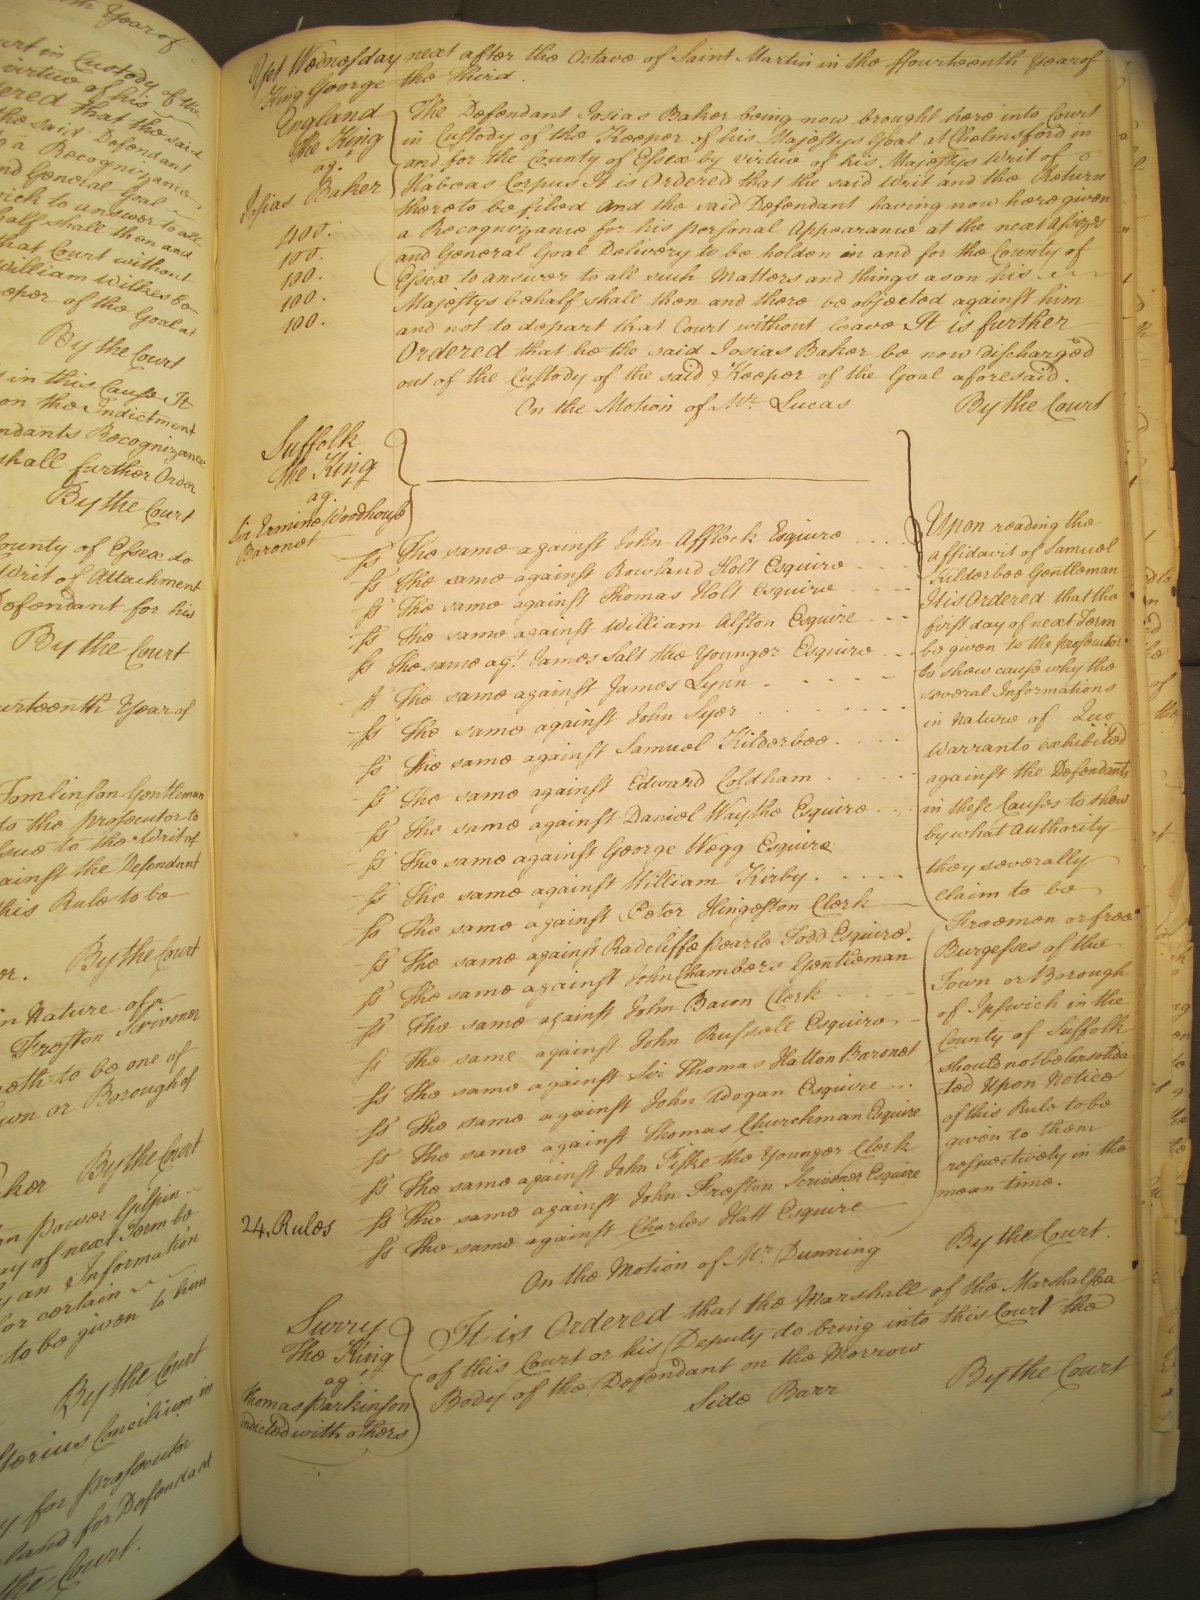 th Year of
urt in Custody of the
virtue of his
ered that the said
the said Defendant
a Recognizance
nd General Goal
rich to answer to all
half shall then and
that Court without
William Wilkes be
eeper of the Goal at
By the Court
in this Cause It
on the Indictment
ndants Recognizance
shall further Order
By the Court
County of Essex do
Writ of Attachment
Defendant for his
By the Court
urteenth Year of
Tomlinson Gentleman
to the prosecutor to
ssue to the Writ of
against the Defendant
this Rule to be
or. By the Court
in Nature of a
Freston Scrivener
eth to be one of
own or Borough of
By the Court
ay of next Term be
y an Information
for certain
to be given to him
By the Court
Concilium in
y for prosecutor
land for Defendant
the Court.
Yet Wednesday next after the Octave of Saint Martin in the ffourteenth Year of
King George the Third.
England
The King
agt.
Josias Baker
400.
100.
100.
100.
100.
The Defendant Josias Baker being now brought here into Court
in Custody of the Keeper of his Majestys Goal at Chelmsford in
and for the County of Essex by virtue of his Majestys Writ of
Habeas Corpus It is Ordered that the said Writ and the Return
thereto be filed And the said Defendant having now here given
a Recognizance for his personal Appearance at the next Assizes
and General Goal Delivery to be holden in and for the County of
Essex to answer to all such Matters and things as on his
Majestys behalf shall then and there be objected against him
and not to depart that Court without leave It is further
Ordered that he the said Josias Baker be now discharged
out of the Custody of the said Keeper of the Goal aforesaid.
On the Motion of Mr. Lucas By the Court
Suffolk
The King
agt.
Sir Ermine Woodhouse
Baronet
ss The same against John Affleck Esquire
ss The same against Rowland Holt Esquire
ss The same against Thomas Holt Esquire
ss The same against William Alston Esquire
ss The same agt. James Salt the Younger Esquire
ss The same against James Lynn
ss The same against John Syer
ss The same against Samuel Kilderbee
ss The same against Edward Coldham
ss The same against Daniel Waythe Esquire
ss The same against George Wegg Esquire
ss The same against William Kirby
ss The same against Peter Hingeston Clerk
ss The same against Radcliffe Pearle Todd Esquire.
ss The same against John Chambers Gentleman
ss The same against John Bacon Clerk
ss The same against John Russell Esquire
ss The same against Sir Thomas Hatton Baronet
ss The same against John Dogan Esquire
ss The same against Thomas Churchman Esquire
ss The same against John Fiske the Younger Clerk
ss The same against John Freston Scrivener Esquire
ss The same against Charles Hatt Esquire
24. Rules
Upon reading the
affidavit of Samuel
Kilderbee Gentleman
It is Ordered that the
first day of next Term
be given to the prosecutor
to shew cause why the
several Informations
in Nature of Quo
Warranto exhibited
against the Defendants
in these Causes to shew
by what authority
they severally
claim to be
Freemen or free
Burgesses of the
Town or Borough
of Ipswich in the
County of Suffolk
should not be consolida
=ted Upon Notice
of this Rule to be
given to them
respectively in the
mean time.
On the Motion of Mr. Dunning By the Court.
Surry
The King
agt.
Thomas Parkinson
indicted with others
It is Ordered that the Marshall of the Marshalsea
of this Court or his Deputy do bring into this Court the
Body of the Defendant on the Morrow
Side Barr By the Court